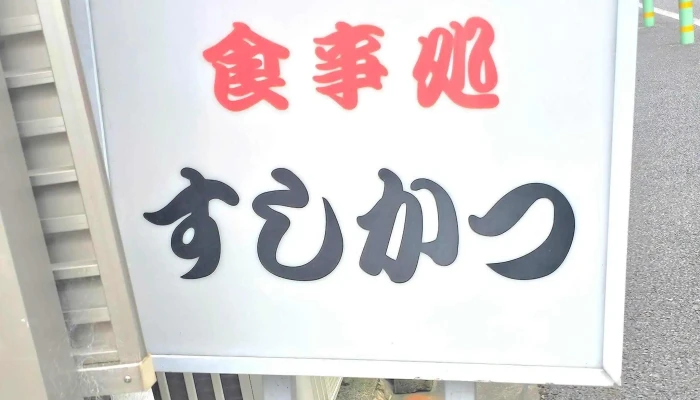 食事処
すしかつ